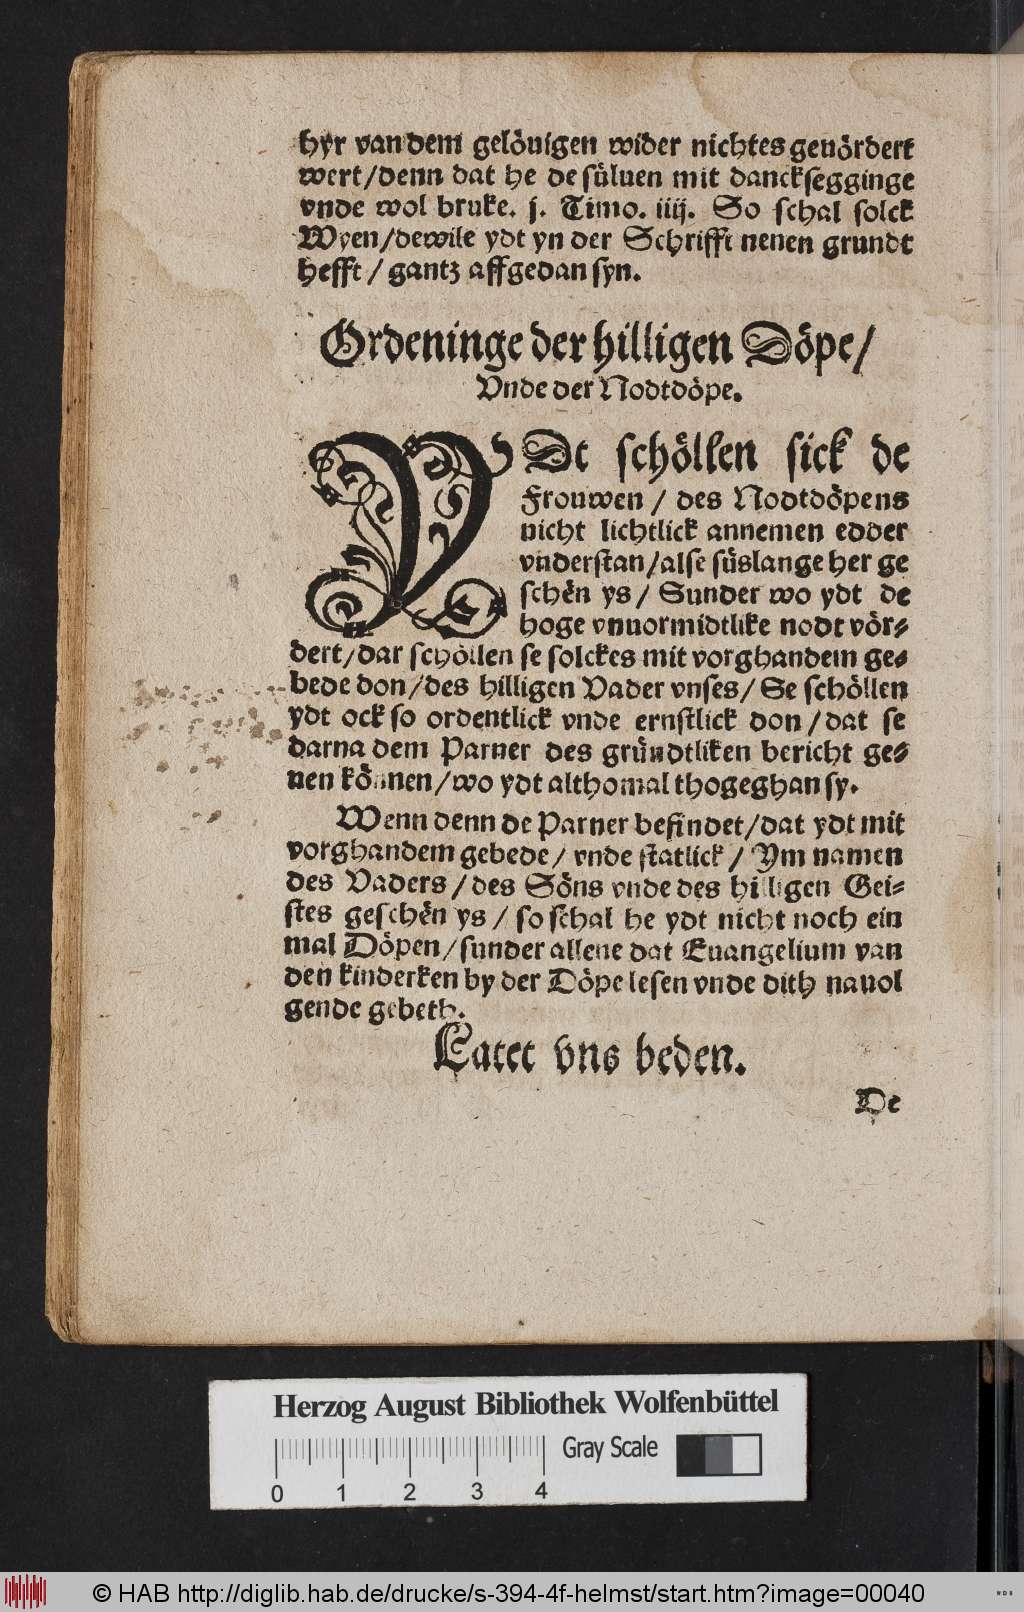 hyr van dem gelöuigen wider nichtes geuördert
wert/denn dat he de süluen mit dancksegginge
vnde wol bruke. j. Timo. iiij. So schal solck
Wyen/dewile ydt yn der Schrifft nenen grundt
hefft / gantz affgedan syn.
Ordeninge der hilligen Döpe/
Vnde der Nodtdöpe.
YDt schöllen sick de
Frouwen / des Nodtdöpens
nicht lichtlick annemen edder
vnderstan/alse süslange her ge
schën ys / Sunder wo ydt de
hoge vnuormidtlike nodt vör-
dert/dar schöllen se solckes mit vorghandem ge-
bede don/des hilligen Vader vnses/ Se schöllen
ydt ock so ordentlick vnde ernstlick don/dat se
darna dem Parner des gründtliken bericht ge-
uen können/wo ydt althomal thogeghan sy.
Wenn denn de Parner befindet/dat ydt mit
vorghandem gebede/ vnde statlick / Ym namen
des Vaders/des Söns vnde des hilligen Gei-
stes geschën ys / so schal he ydt nicht noch ein
mal Döpen/sunder allene dat Euangelium van
den kinderken by der Döpe lesen vnde dith nauol
gende gebeth.
Latet vns beden.
De
Herzog August Bibliothek Wolfenbüttel
Gray Scale
0 1 2 3 4
© HAB http://diglib.hab.de/drucke/s-394-4f-helmst/start.htm?image=00040